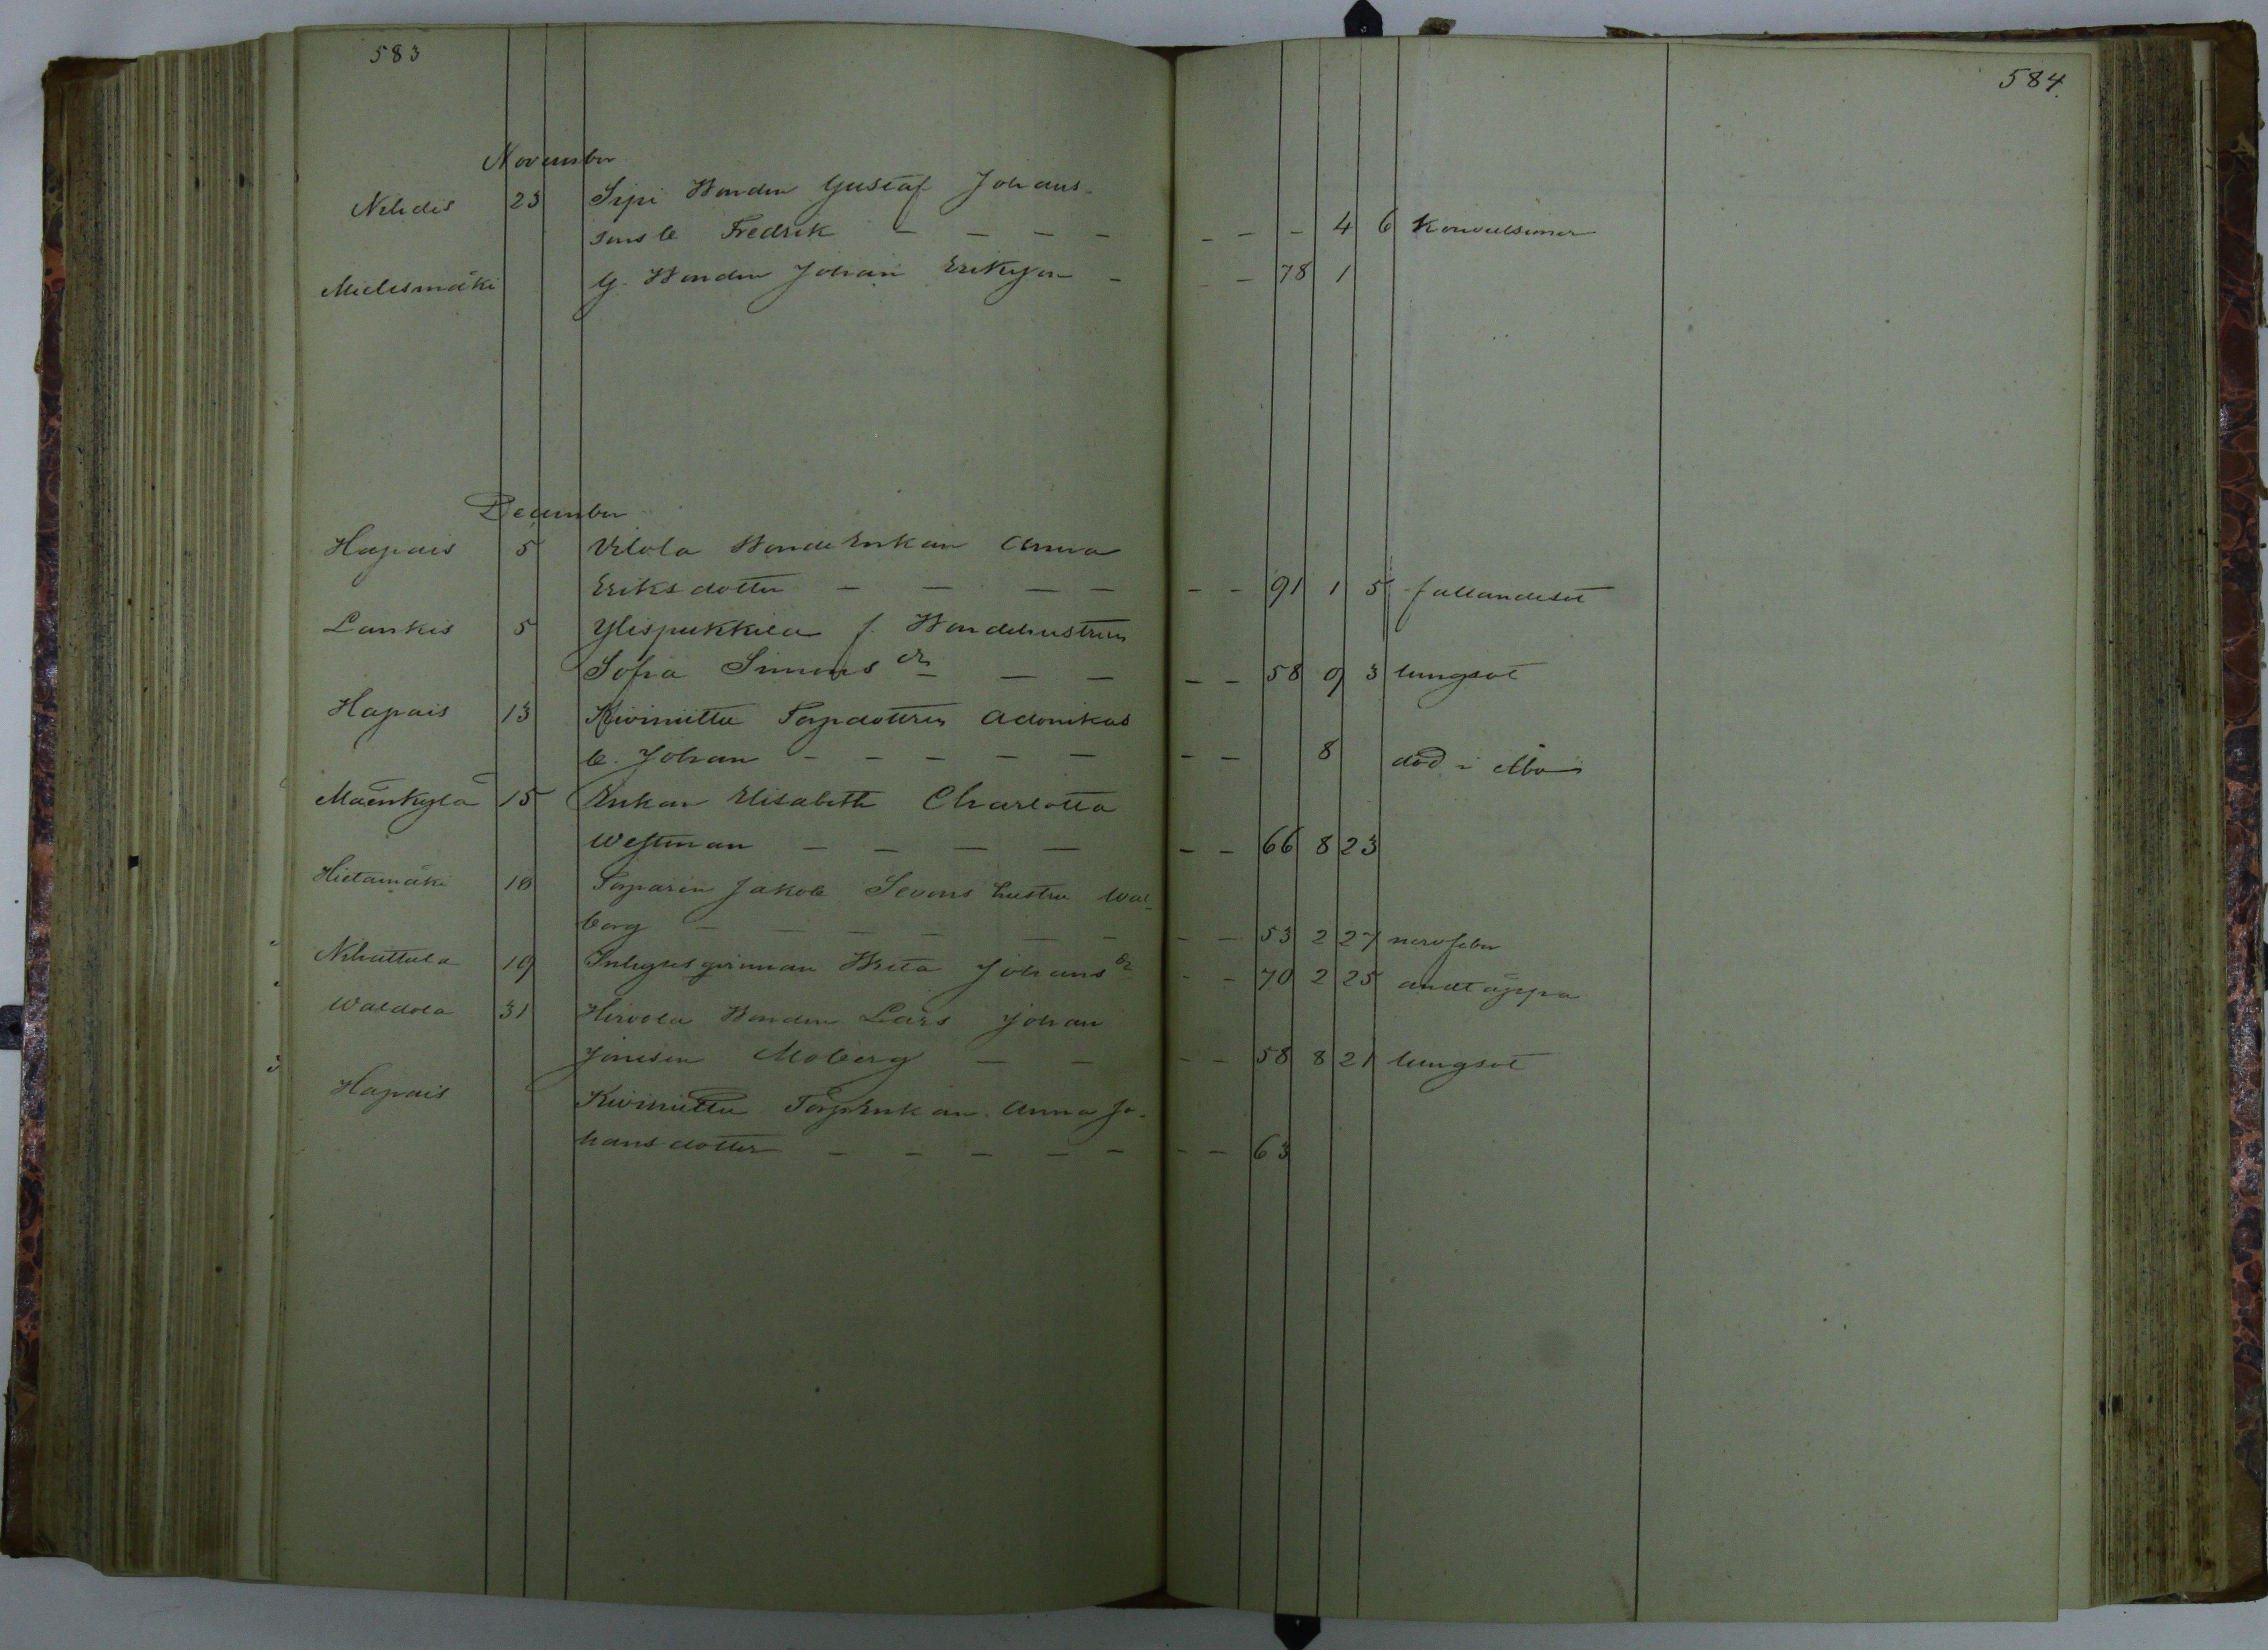 583
584
November
Nihdis 23 Sipi Bonden Gustaf Johans-
sons b Fredrik — — — — — — — 4 6 konvulsioner
Mielismäki G. Bonden Johan Eriksson — — 78 1
December
Hapais 5 Ylola Bonde Enkan Anna
Eriksdotter — — — — — — 91 1 5 fallandesot
Lankis 5 Ylispukkila f. Bondehustrun
Sofia Simons dr — — — — 58 9 3 lungsot
Hapais 13 Kiviniittu Torpdottren Adonikas
b. Johan — — — — — — — 8 död i Åbo
Mäenkylä 15 Enkan Elisabeth Charlotta
Westman — — — — — — 66 8 23
Hietamäki 18 Torparen Jakob Sevons hustru Wal-
borg — — — — — — — — 53 2 27 nervfeber
Nihattula 19 Inhysesqvinnan Brita Johans dr — — 70 2 25 andtäppa
Waldola 31 Hirvola Bonden Lars Johan
Jonsson Moberg — — — — 58 8 21 lungsot
Hapais Kiviniittu Torpenkan Anna Jo-
hansdotter — — — — — — — 63